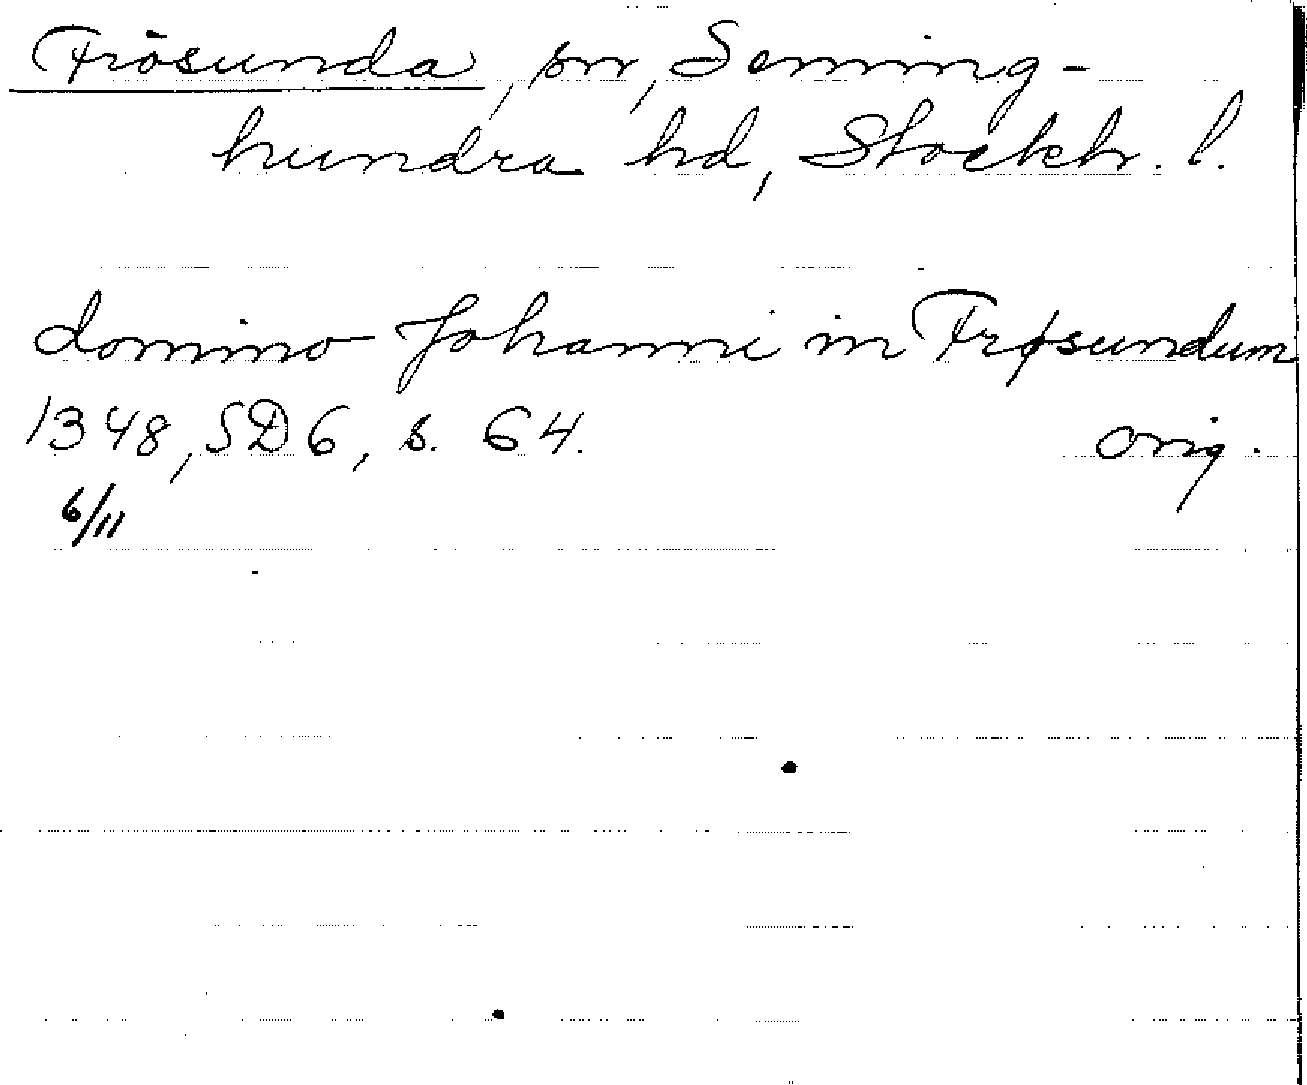 Frösunda, sn, Seming-
hundra hd, Stockh. l.
domino Johanni in Frøsundum
1348, SD6, s. 64. orig.
6/11